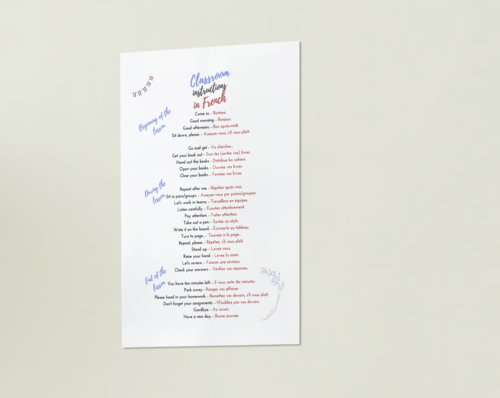 Classroom
instructions
in French
Beginning of the
lesson
Come in. - Rentrez.
Good morning. - Bonjour.
Good afternoon. - Bon après-midi.
Sit down, please. - Asseyez-vous, s'il vous plaît.
Go and get - Va chercher...
Get your book out. - livres
Hand out the books. - Distribue les cahiers.
Open your books. - Ouvrez vos livres.
Close your books. - Fermez vos livres.
During the
lesson
Repeat after me. - Répétez après moi.
Sit in pairs/groups. - Asseyez-vous par paires/groupes.
Let's work in teams. - Travaillons en équipes.
Listen carefully. - Écoutez attentivement.
Pay attention. - Faites attention.
Take out a pen. - Sortez un stylo.
Write it on the board. - Écrivez-le au tableau.
Turn to page... - Tournez à la page...
Repeat, please. - Répétez, s'il vous plaît.
Stand up. - Levez-vous.
Raise your hand. - Levez la main.
Let's review. - Faisons une révision.
Check your answers. - Vérifiez vos réponses.
End of the
lesson
You have ten minutes left. - Il vous reste dix minutes.
Pack away. - Rangez vos affaires.
Please hand in your homework. - Remettez vos devoirs, s'il vous plaît.
Don't forget your assignments. - N'oubliez pas vos devoirs.
Goodbye. - Au revoir.
Have a nice day. - Bonne journée.